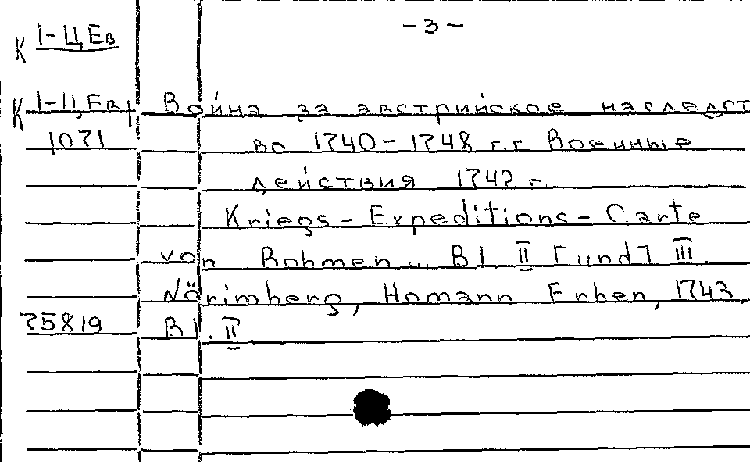 -3-
К 1-ЦЕв
К 1-ЦЕв+ Война за австрийское наследст
1071 во 1740-1748 г.г Военные
действия 1742 г.
Kriegs-Expeditions-Carte
von Bohmen.. Bl II [und] III
Nörimberg, Homann Erben, 1743
75819 Bl. II